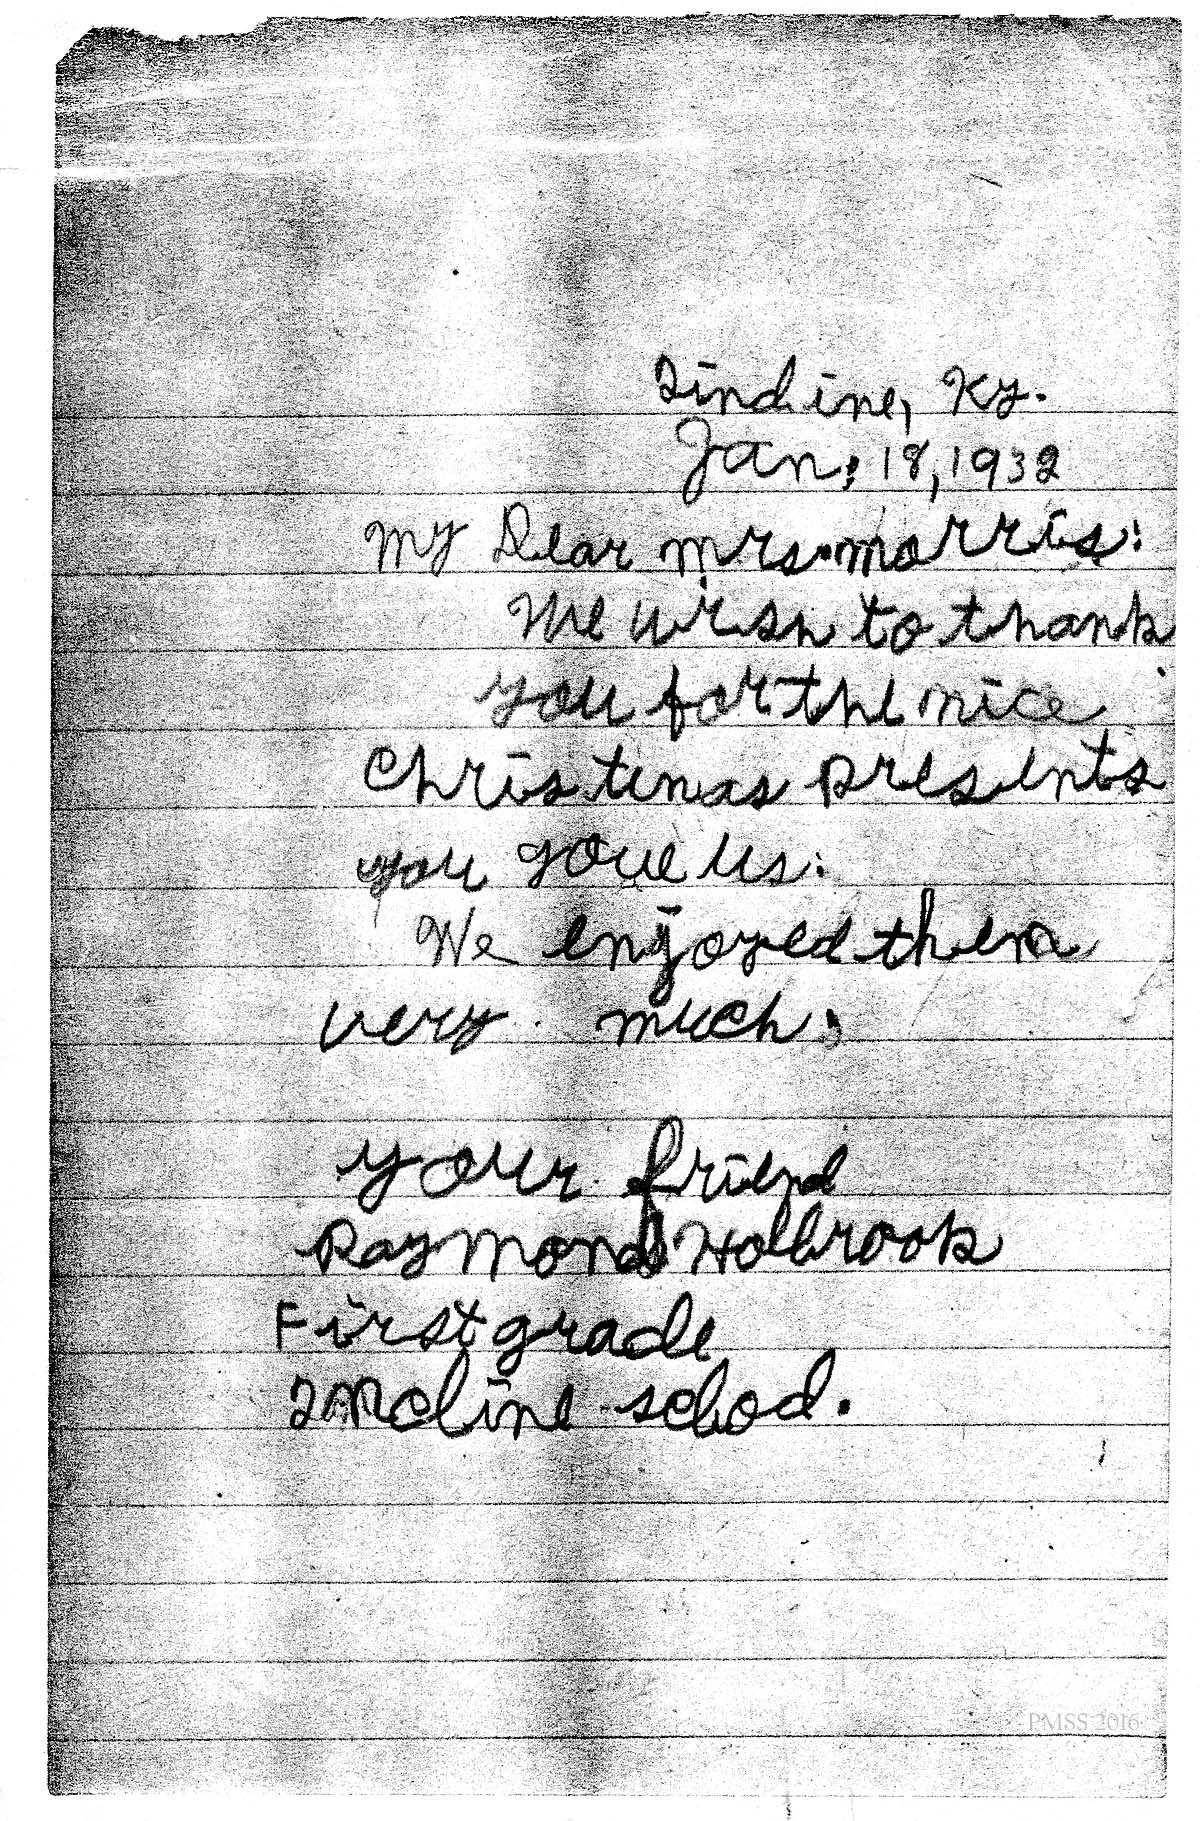 Dindine, Ky.
Jan. 18, 1932
My Dear Mrs. Morris:
We wish to thank
you for the nice
Christmas presents
you gave us.
We enjoyed them
very much.
your friend
Raymond Holbrook
First grade
Incline school.
PMSS 2016